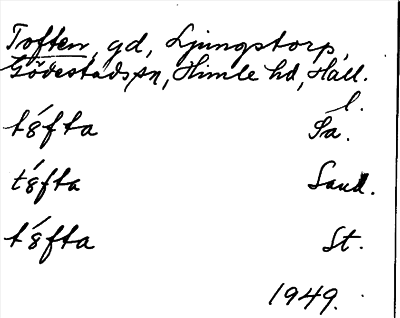 Toften, gd, Ljungstorp,
Gödestads sn, Himle hd, Hall.
l.
tȣ́fta Sa.
tȣ́fta Sand.
tȣ́fta St.
1949.